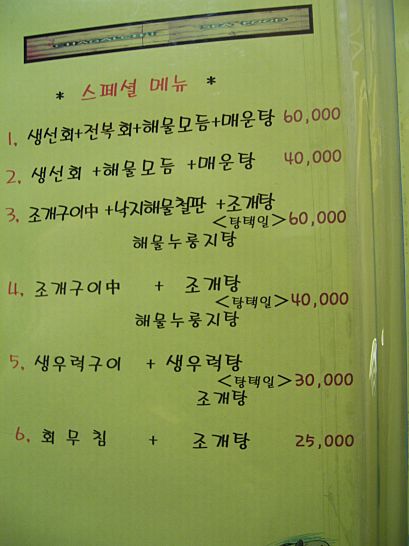 * 스페셜 메뉴 *
1. 생선회+전복회+해물모듬+매운탕 60,000
2. 생선회 +해물모듬 +매운탕 40,000
3. 조개구이中 +낙지해물철판 +조개탕
<탕택일>60,000
해물누룽지탕
4. 조개구이中 + 조개탕
<탕택일>40,000
해물누룽지탕
5. 생우럭구이 + 생우럭탕
<탕택일>30,000
조개탕
6. 회무침 + 조개탕 25,000